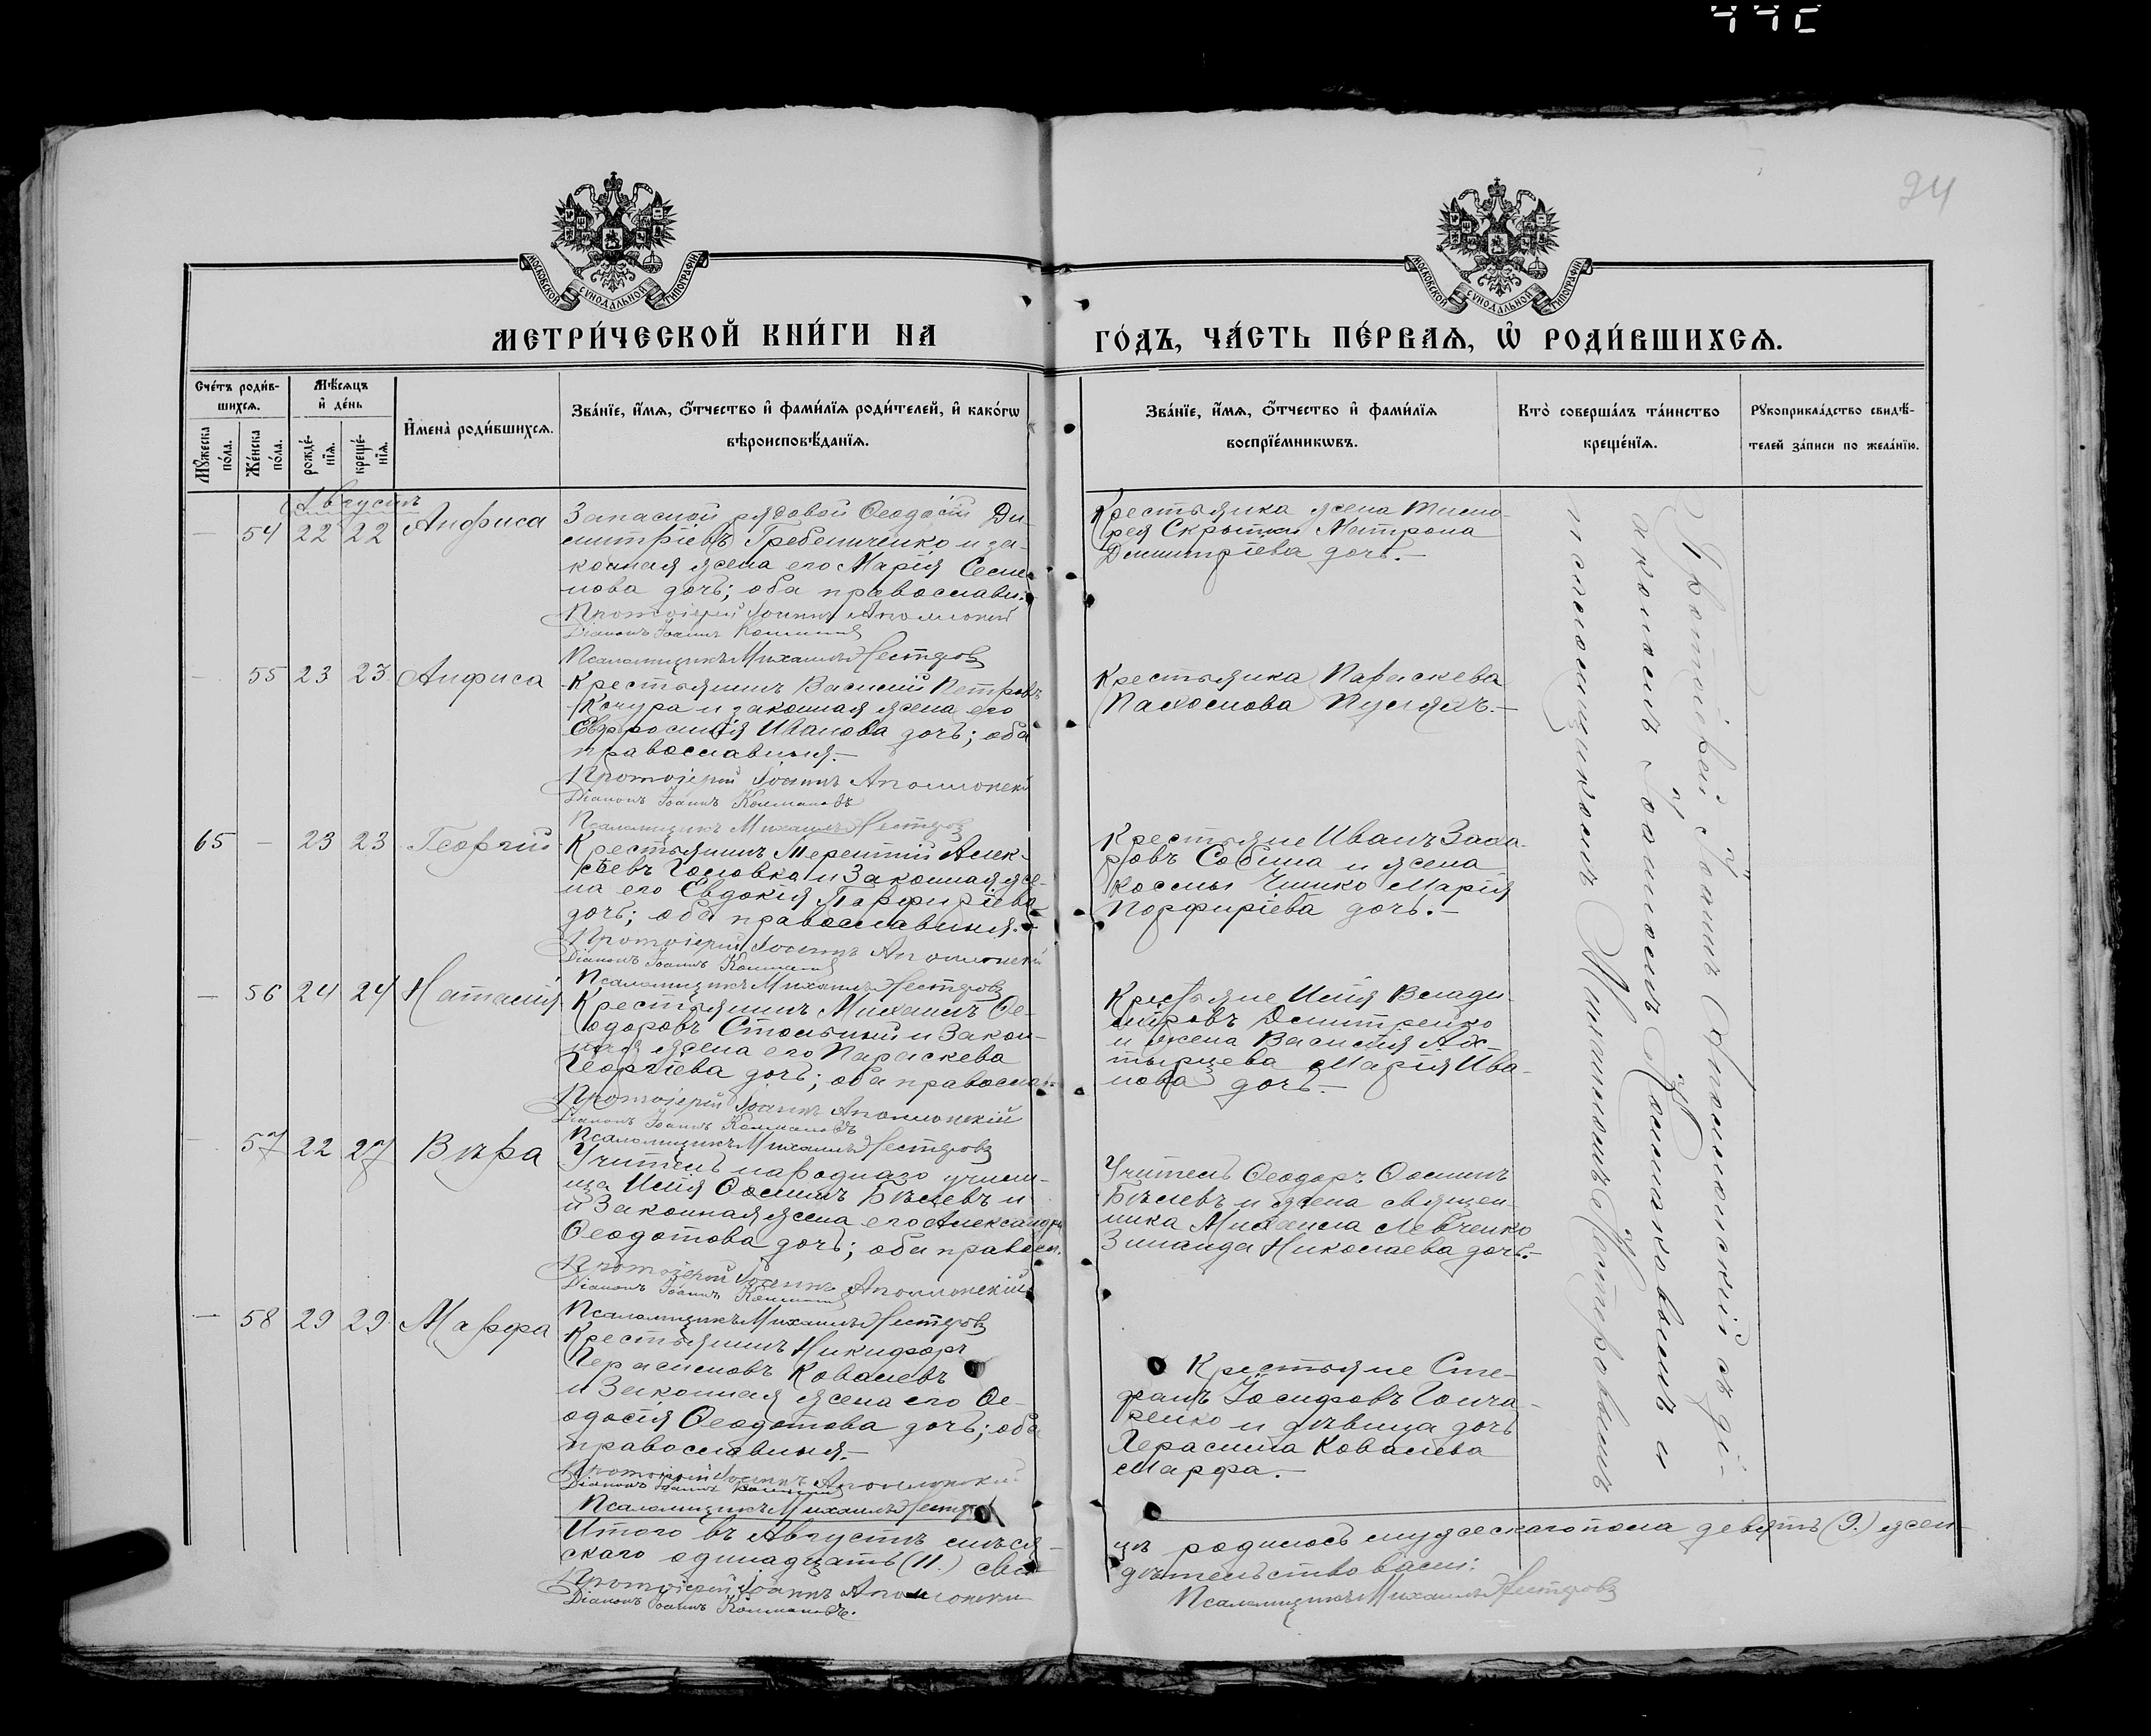 24
МОСКОВСКОЙ СУНОДАЛЬНОЙ ТИПОГРАФІИ
МОСКОВСКОЙ СУНОДАЛЬНОЙ ТИПОГРАФІИ
МЕТРИ́ЧЕСКОЙ КНИ́ГИ НА ГО́ДЪ, ЧА́СТЬ ПЕ́РВАѦ, Ѡ҆ РОДИ́ВШИХСѦ.
Сче́тъ роди́в-
шихсѧ.
Мꙋ́жеска по́ла.
Же́нска по́ла.
Мѣ́сѧцъ
и҆ де́нь
рожде́-
нїѧ.
креще́-
нїѧ.
И҆мена̀ роди́вшихсѧ.
Зва́нїе, и҆́мѧ, ѻ҆́тчество и҆ фами́лїѧ роди́телей, и҆ како́гѡ
вѣроисповѣ́данїѧ.
Зва́нїе, и҆́мѧ, ѻ҆́тчество и҆ фами́лїѧ
воспрїе́мникѡвъ.
Кто̀ соверша́лъ та́инство
креще́нїѧ.
Рꙋкоприкла́дство свидѣ́-
телей за́писи по жела́нїю.
Августъ
— 54 22 22 Анфиса
Запасной рядовой Ѳеодосій Ди-
митріевъ Гребенченко и за-
конная жена его Марія Семе-
нова дочь; оба православн.
Протоіерей Іоаннъ Аполлонскій
Діаконъ Іоаннъ Колмаковъ
Псаломщикъ Михаилъ Нестеровъ
Крестьянка жена Тимо-
фея Матрона
Димитріева дочь.—
— 55 23 23 Анфиса
Крестьянинъ Василій Петровъ
Кочура и законная жена его
Евфросинія Иванова дочь; оба
православныя.—
Протоіерей Іоаннъ Аполлонскій
Діаконъ Іоаннъ Колмаковъ
Псаломщикъ Михаилъ Нестеровъ
Крестьянка Параскева
Пахомова
65 — 23 23 Георгій
Крестьянинъ Терентій Алек-
сѣевъ Головко и законная же-
на его Евдокія Порфиріева
дочь; оба православныя.—
Протоіерей Іоаннъ Аполлонскій
Діаконъ Іоаннъ Колмаковъ
Псаломщикъ Михаилъ Нестеровъ
Крестьяне Иванъ Заха-
ровъ и жена
Космы Марія
Порфиріева дочь.—
— 56 24 24 Наталія
Крестьянинъ Михаилъ Ѳе-
одоровъ и закон-
ная жена его Параскева
Георгіева дочь; оба православ.
Протоіерей Іоаннъ Аполлонскій
Діаконъ Іоаннъ Колмаковъ
Псаломщикъ Михаилъ Нестеровъ
Крестьяне Илія Влади-
міровъ Демитренко
и жена Василія Ах-
тырцева Марія Ива-
нова дочь.—
— 57 22 27 Вѣра
Учитель народнаго учили-
ща Илія Ѳоминъ Бѣлевъ и
и законная жена его Александра
Ѳеодотова дочь; оба правосл.
Протоіерей Іоаннъ Аполлонскій
Діаконъ Іоаннъ Колмаковъ
Псаломщикъ Михаилъ Нестеровъ
Учитель Ѳеодоръ Ѳоминъ
Бѣлевъ и жена священ-
ника Михаила Левченко
Зинаида Николаева дочь.—
— 58 29 29 Марфа
Крестьянинъ Никифоръ
Герасимовъ Ковалевъ
и законная жена его Ѳе-
одосія Ѳеодотова дочь; оба
православныя.—
Протоіерей Іоаннъ Аполлонскій
Діаконъ Іоаннъ Колмаковъ
Псаломщикъ Михаилъ Нестеровъ
Крестьяне Сте-
фанъ Іосифовъ Гонча-
ренко и дѣвица дочь
Герасима Ковалева
Марфа.—
Протоіерей Іоаннъ Аполлонскій съ ді-
акономъ Іоанномъ Колмаковымъ и
псаломщикомъ Михаиломъ Нестеровымъ
Итого въ Августѣ мѣся-
цѣ родилось мужескаго пола девять (9.) жен-
скаго одинадцать (11.) сви-
дѣтельствовали:
Протоіерей Іоаннъ Аполлонскій
Діаконъ Іоаннъ Колмаковъ.
Псаломщикъ Михаилъ Нестеровъ